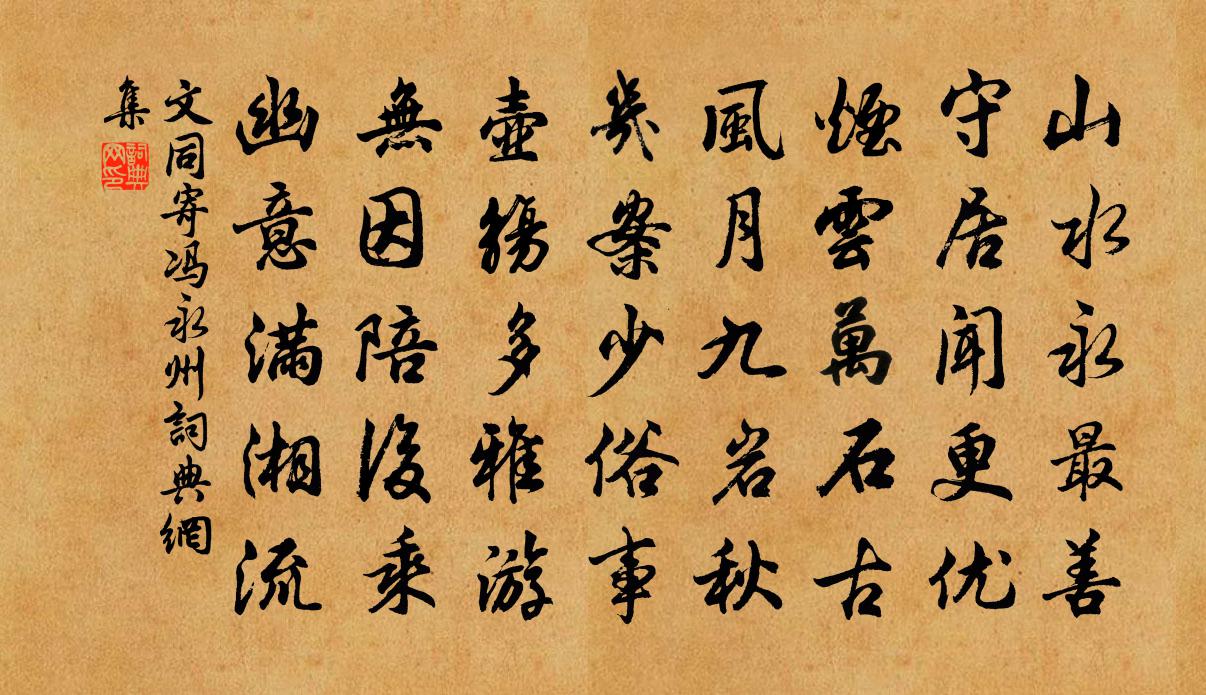 山水永最善
守居闻更优
煙雲萬石古
風月九岩秋
几案少俗事
壺觴多雅游
無因陪後乘
幽意满湘流
文同寄冯永州詞典網
集
詞典網印